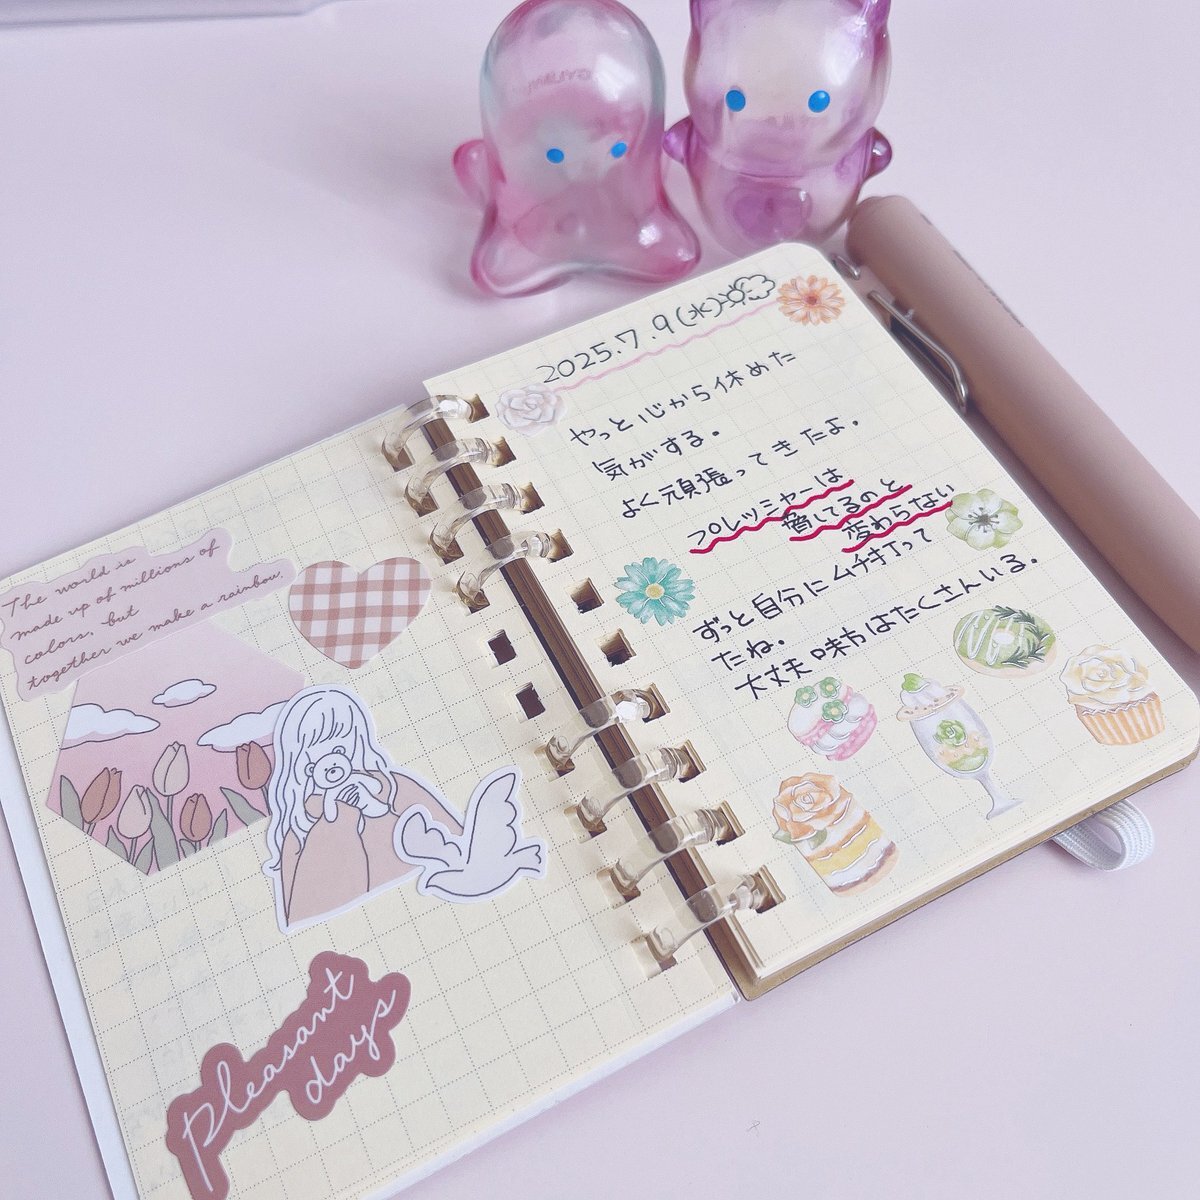 The world is
made up of millions of
colors, but
together we make a rainbow.
pleasant
days
2025.7.9(水)
やっと心から休めた
気がする.
よく頑張ってきたよ.
プレッシャーは
脅してるのと
変わらない
ずっと自分にムチ打って
たね.
大丈夫 味方はたくさんいる.